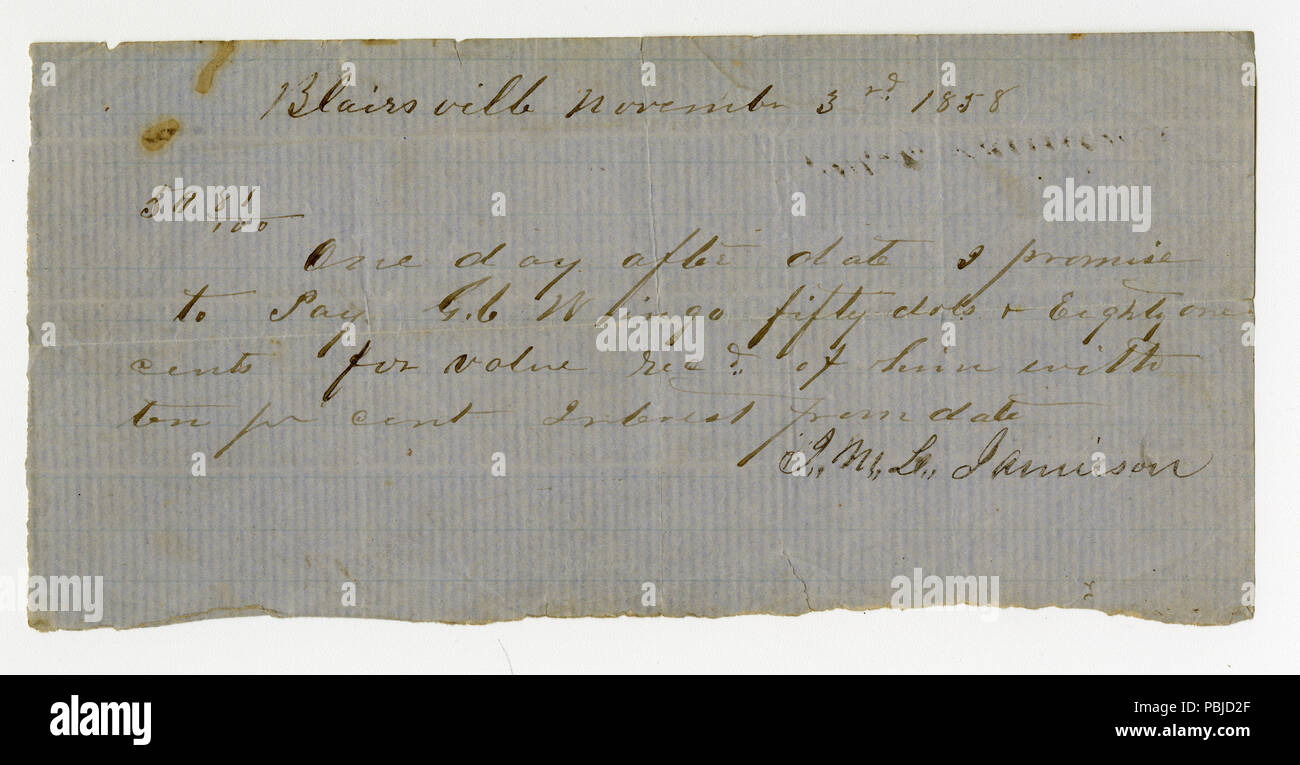 Blairsville Novembr 3rd. 1858
50 81/100
One day after date I promise
to Pay G.C Wingo fifty dols & Eighty one
cents for value Recd. of him with
ten pr cent Interest from date
J,, M,, L,, Jamieson
alamy
alamy
Image ID: PBJD2F
www.alamy.com